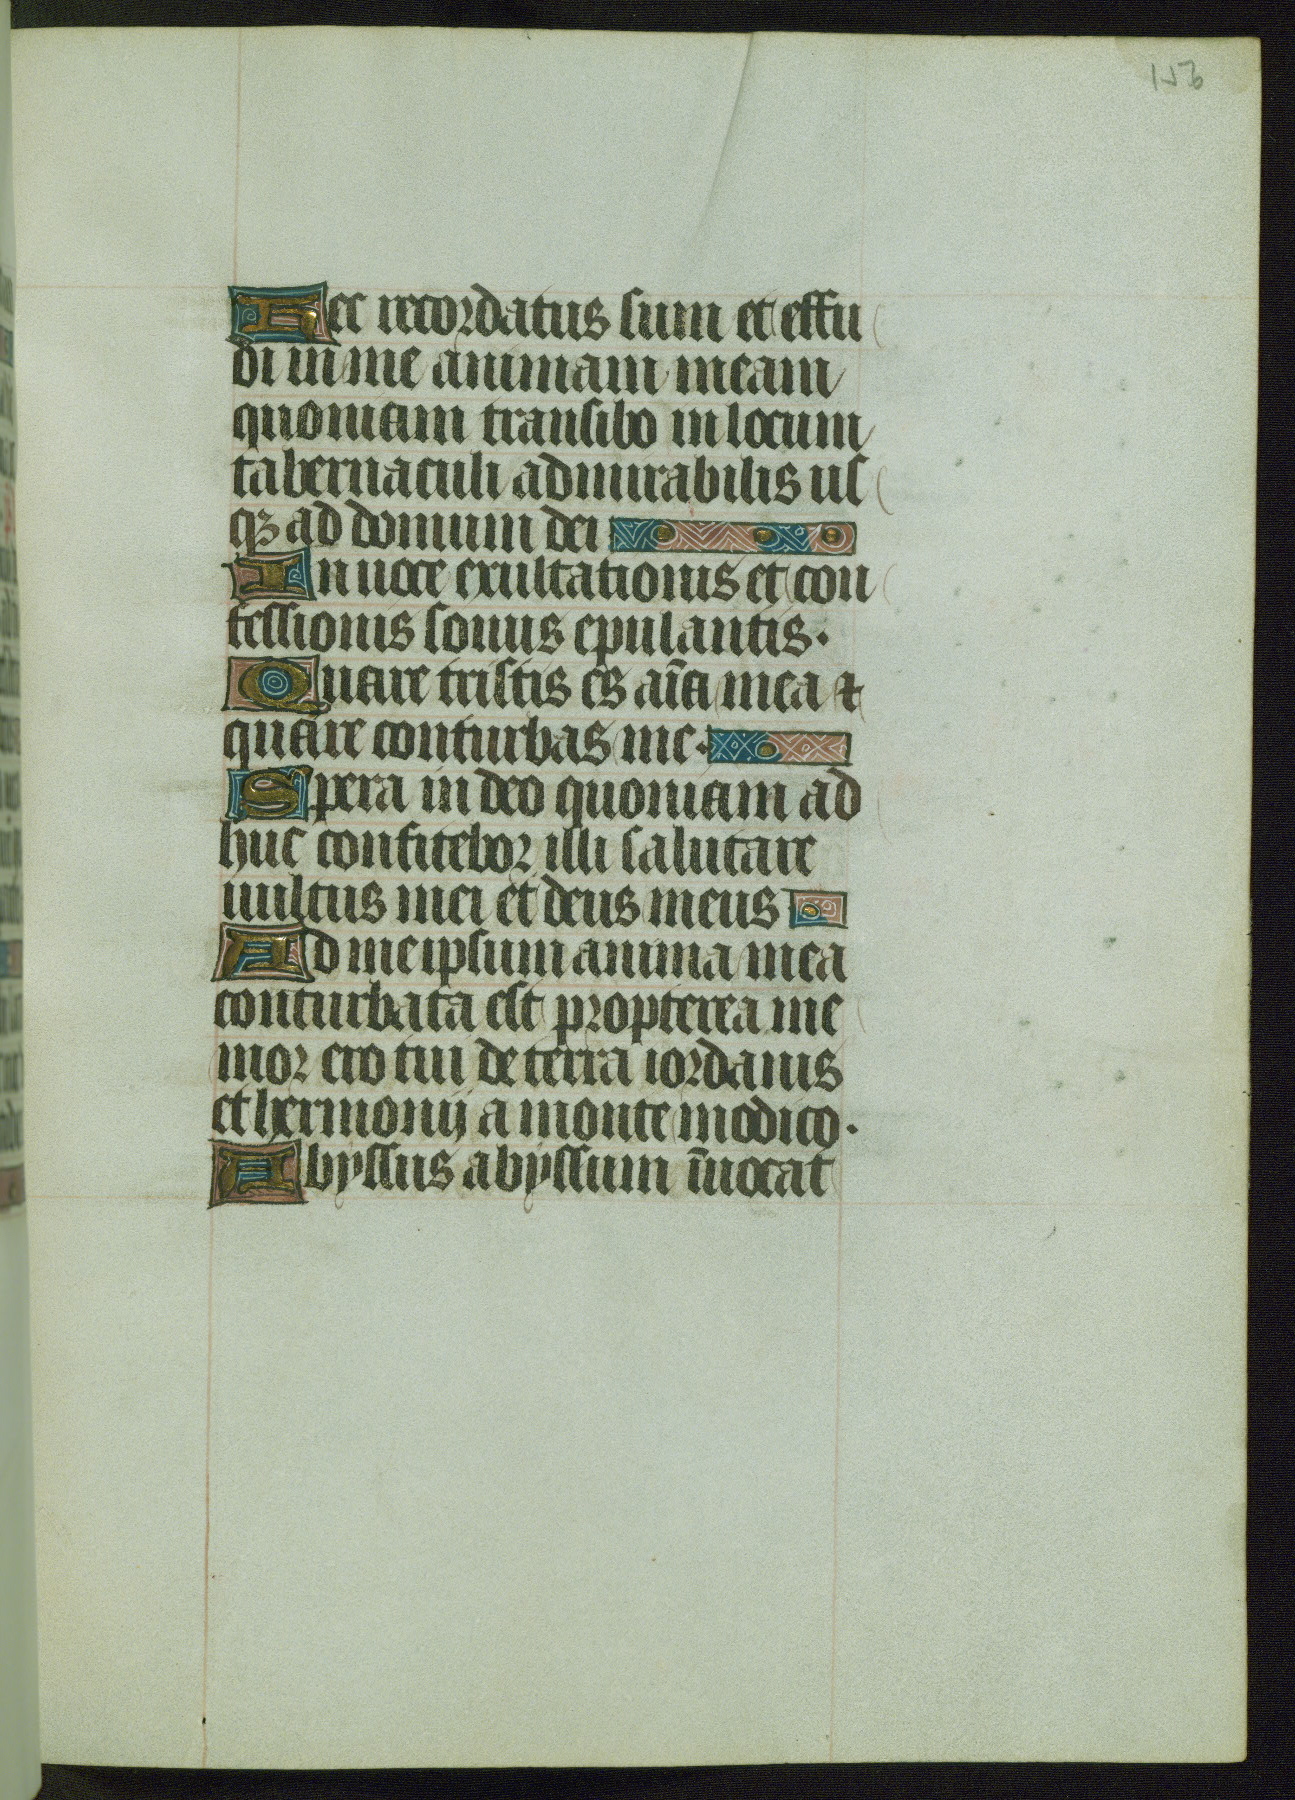 156
Hec recordatus sum et effu
di in me animam meam
quoniam transibo in locum
tabernaculi admirabilis us
qꝫ ad domum dei
In uoce exultationis et con
fessionis sonus epulantis.
Quare tristis es aīa mea ⁊
quare conturbas me.
Spera in deo quoniam ad
huc confitebor illi salutare
uultus mei et deus meus
Ad me ipsum anima mea
conturbata est propterea me
mor ero tui de terra iordanis
et hermonij a monte modico.
Abyssus abyssum īuocat